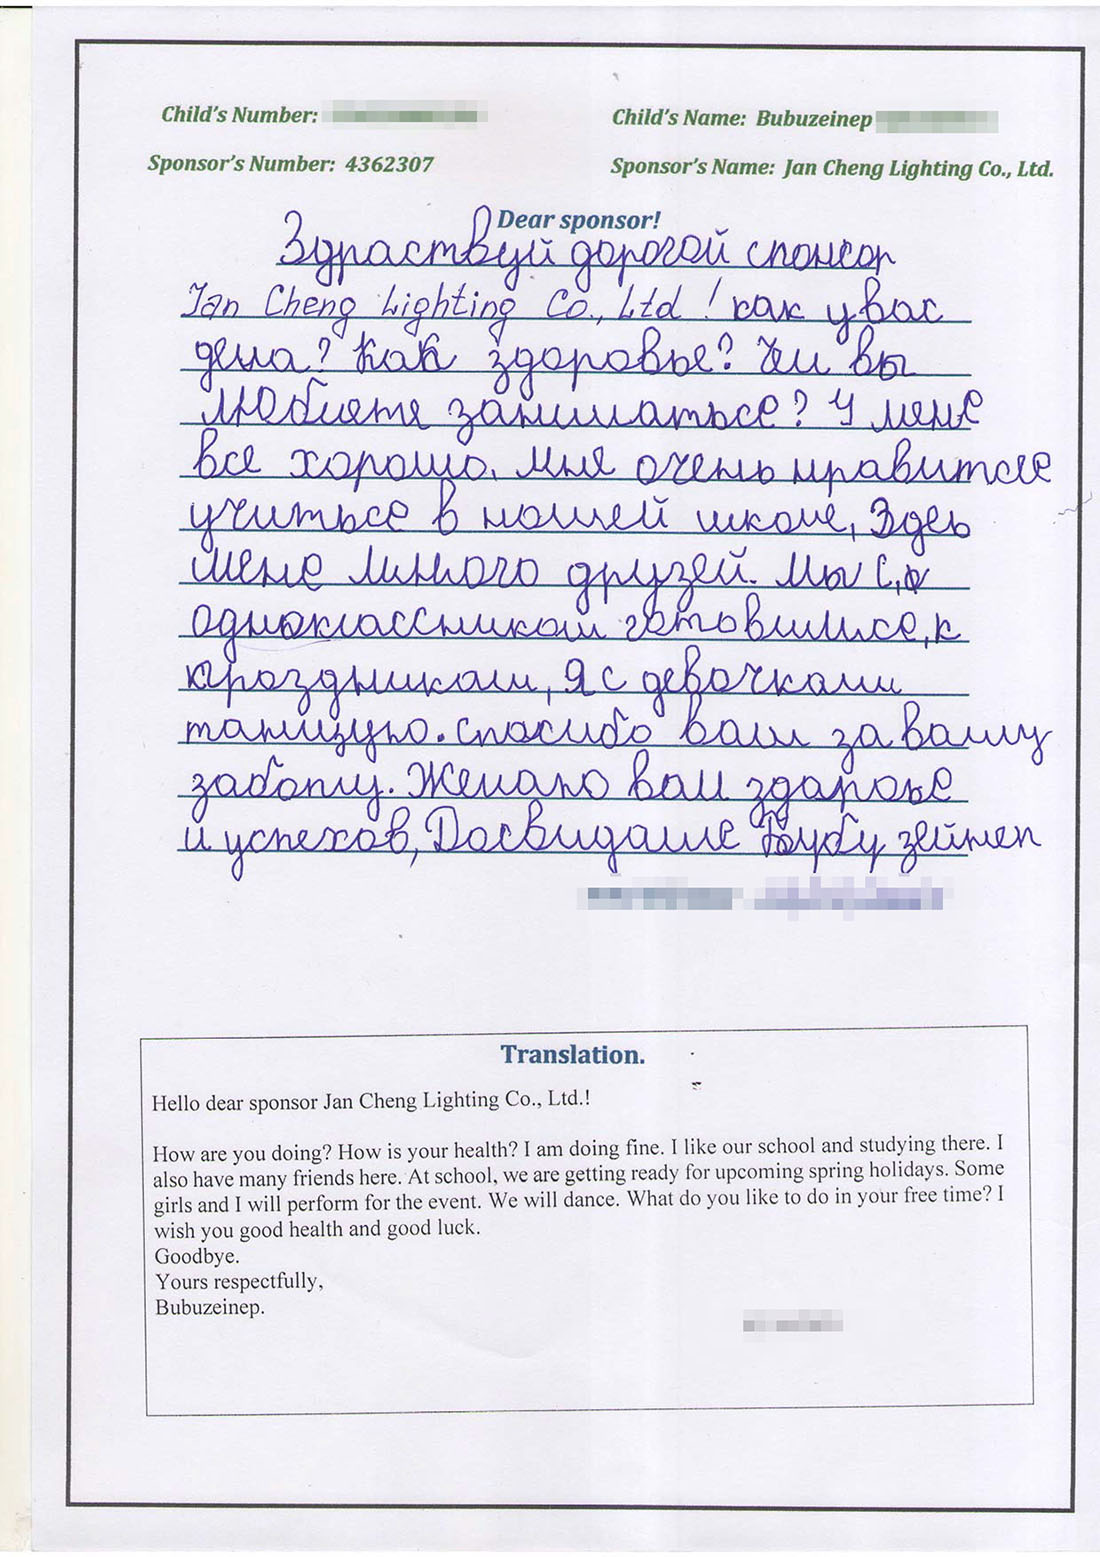 Child's Number:
Child's Name: Bubuzeinep
Sponsor's Number: 4362307
Sponsor's Name: Jan Cheng Lighting Co., Ltd.
Dear sponsor!
Здраствуй дорогой спонсор
Jan Cheng Lighting Co., Ltd! как у вас
дела? Как здоровье? Чем вы
любите заниматься? У меня
все хорошо. Мне очень нравится
учиться в нашей школе, Здесь
меня много друзей. Мы с
одноклассником готовимся, к
праздникам, Я с девочками
танцую. спасибо вам за вашу
заботу. Желаю вам здоровье
и успехов, Досвидание Бубузейнеп
Translation.
Hello dear sponsor Jan Cheng Lighting Co., Ltd.!
How are you doing? How is your health? I am doing fine. I like our school and studying there. I
also have many friends here. At school, we are getting ready for upcoming spring holidays. Some
girls and I will perform for the event. We will dance. What do you like to do in your free time? I
wish you good health and good luck.
Goodbye.
Yours respectfully,
Bubuzeinep.